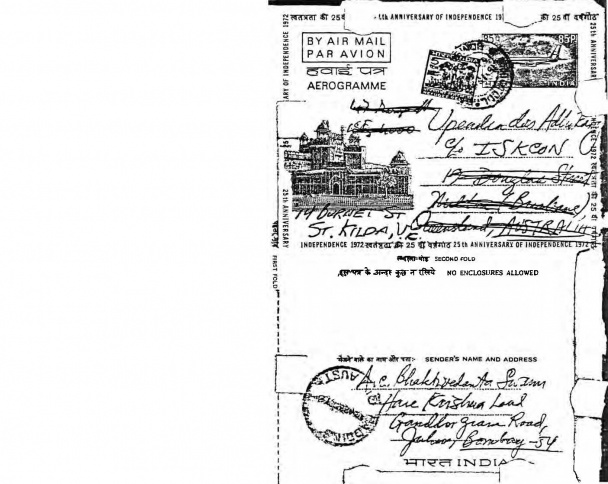 स्वतंत्रता की 25वीं
25th ANNIVERSARY OF INDEPENDENCE 19
की 25 वीं वर्षगांठ
BY AIR MAIL
PAR AVION
हवाई पत्र
AEROGRAMME
85P 85P
INDIA
ARY OF INDEPENDENCE 1972
25th ANNIVERSARY
25th ANNIVERSARY
Upendra das Adhikari
c/o ISKCON
19 Douglas Street
Milton, Brisbane,
Queensland, AUSTRALIA
14 BURNET ST
ST. KILDA, VIC.
INDEPENDENCE 1972 स्वतंत्रता की 25 वीं वर्षगांठ 25th ANNIVERSARY OF INDEPENDENCE 1972
FIRST FOLD
SECOND FOLD
इस पत्र के अन्दर कुछ न रखिये NO ENCLOSURES ALLOWED
भेजने वाले का नाम और पता:- SENDER'S NAME AND ADDRESS
A.C. Bhaktivedanta Swami
Hare Krishna Land
Gandhi Gram Road,
Juhu, Bombay-54
भारत INDIA